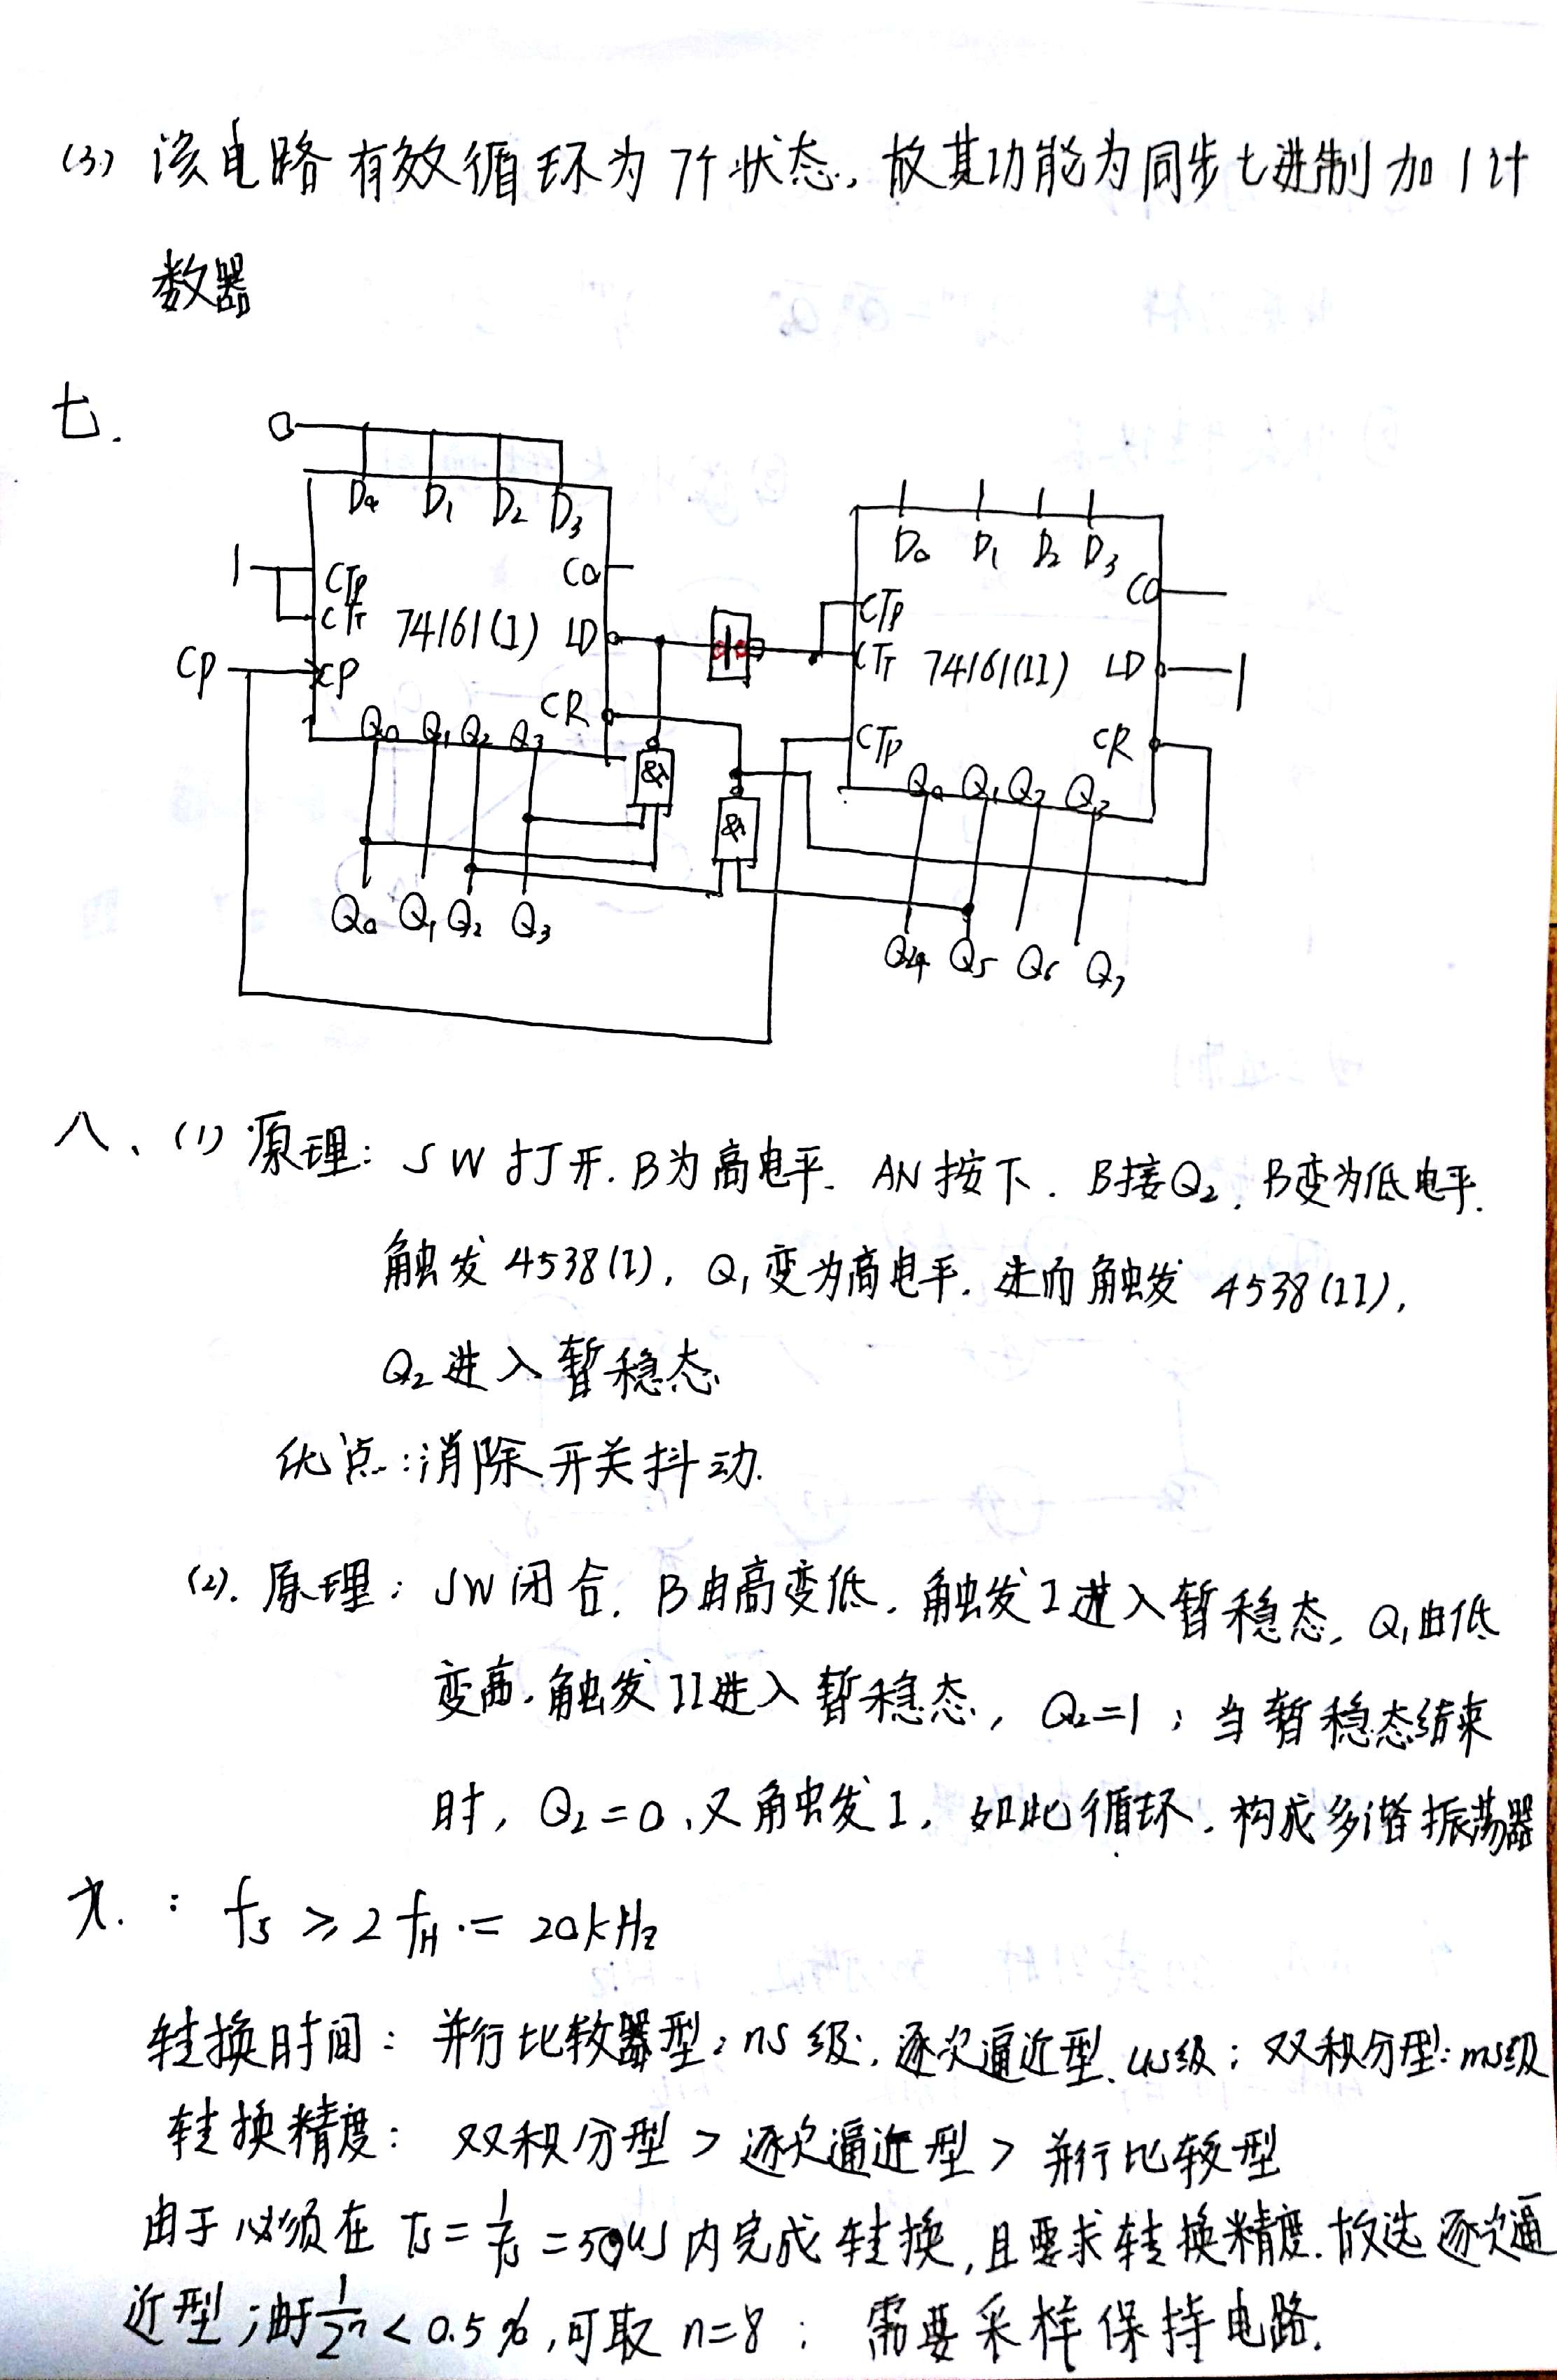 (3) 该电路有效循环为7个状态, 故其功能为同步七进制加1计
数器
七.
0
D0 D1 D2 D3
D0 D1 D2 D3
1 CTP CO
CTP CO
CTT 74161(I) LD 1
CTT 74161(II) LD 1
CP CP CR
CTP CR
Q0 Q1 Q2 Q3 & &
Q0 Q1 Q2 Q3
Q0 Q1 Q2 Q3
Q4 Q5 Q6 Q7
八、(1) 原理: SW打开. B为高电平. AN按下. B接Q2, B变为低电平.
触发4538(I), Q1变为高电平. 进而触发 4538(II),
Q2进入暂稳态
优点:消除开关抖动.
(2). 原理: SW闭合. B由高变低. 触发I进入暂稳态, Q1由低
变高. 触发II进入暂稳态, Q2=1; 当暂稳态结束
时, Q2=0, 又触发I, 如此循环, 构成多谐振荡器
九. : fs ≥ 2fH = 20kHz
转换时间: 并行比较器型: ns级; 逐次逼近型: us级; 双积分型: ms级
转换精度: 双积分型 > 逐次逼近型 > 并行比较型
由于必须在 Ts = 1/fs = 50us 内完成转换, 且要求转换精度. 故选逐次逼
近型; 由于 1/2^n < 0.5%, 可取 n=8; 需要采样保持电路.